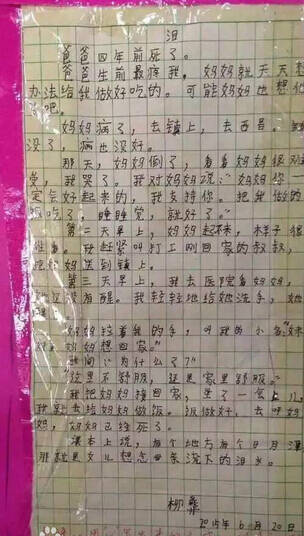 泪
爸爸四年前死了。
爸爸生前最疼我，妈妈就天天想
办法给我做好吃的。可能妈妈也想他
了吧。
妈妈病了，去镇上，去西昌。
没了，病也没好。
那天，妈妈倒了，看着妈妈很难
受，我哭了。我对妈妈说："妈妈你一
定会好起来的，我支持你。把我做的
饭吃了，睡睡觉，就好了。"
第二天早上，妈妈起不来，样子很
难看。我赶紧叫打工刚回家的叔叔，
把妈妈送到镇上。
第三天早上，我去医院看妈妈，
她还没有醒。我轻轻地给她洗手，她
妈妈拉着我的手，叫我的小名："妹
妈妈想回家。"
我问："为什么了？"
"这里不舒服，还是家里舒服。"
我把妈妈接回家，坐了一会儿，
我就去给妈妈做饭。饭做好，去叫妈
妈，妈妈已经死了。
课本上说，有个地方有个日月潭，
那就是女儿想念母亲流下的泪水。
柳彝
2015年6月20日